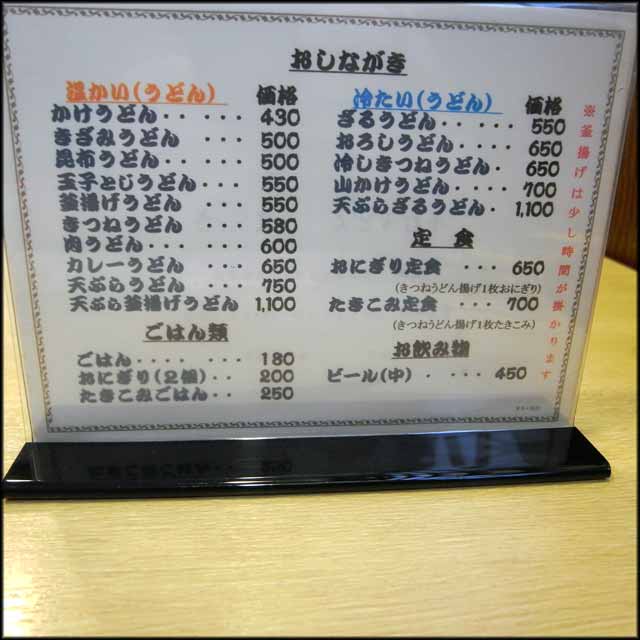 おしながき
温かい(うどん) 価格
かけうどん・・ ・・・ 430
きざみうどん ・・・ 500
昆布うどん ・・・ 500
玉子とじうどん ・・・ 550
釜揚げうどん ・・・ 550
きつねうどん ・・・ 580
肉うどん・・ ・・・ 600
カレーうどん ・・・ 650
天ぷらうどん ・・・ 750
天ぷら釜揚げうどん 1,100
ごはん類
ごはん・・・・ ・・・ 180
おにぎり(2個)・・ 200
たきこみごはん・・ 250
冷たい(うどん) 価格
ざるうどん・・ ・・・ 550
おろしうどん・ ・・・ 650
冷しきつねうどん・ 650
山かけうどん・ ・・・ 700
天ぷらざるうどん・ 1,100
定 食
おにぎり定食 ・・・ 650
(きつねうどん揚げ1枚おにぎり)
たきこみ定食 ・・・ 700
(きつねうどん揚げ1枚たきこみ)
お飲み物
ビール(中)・ ・・・ 450
※釜揚げは少し時間が掛かります